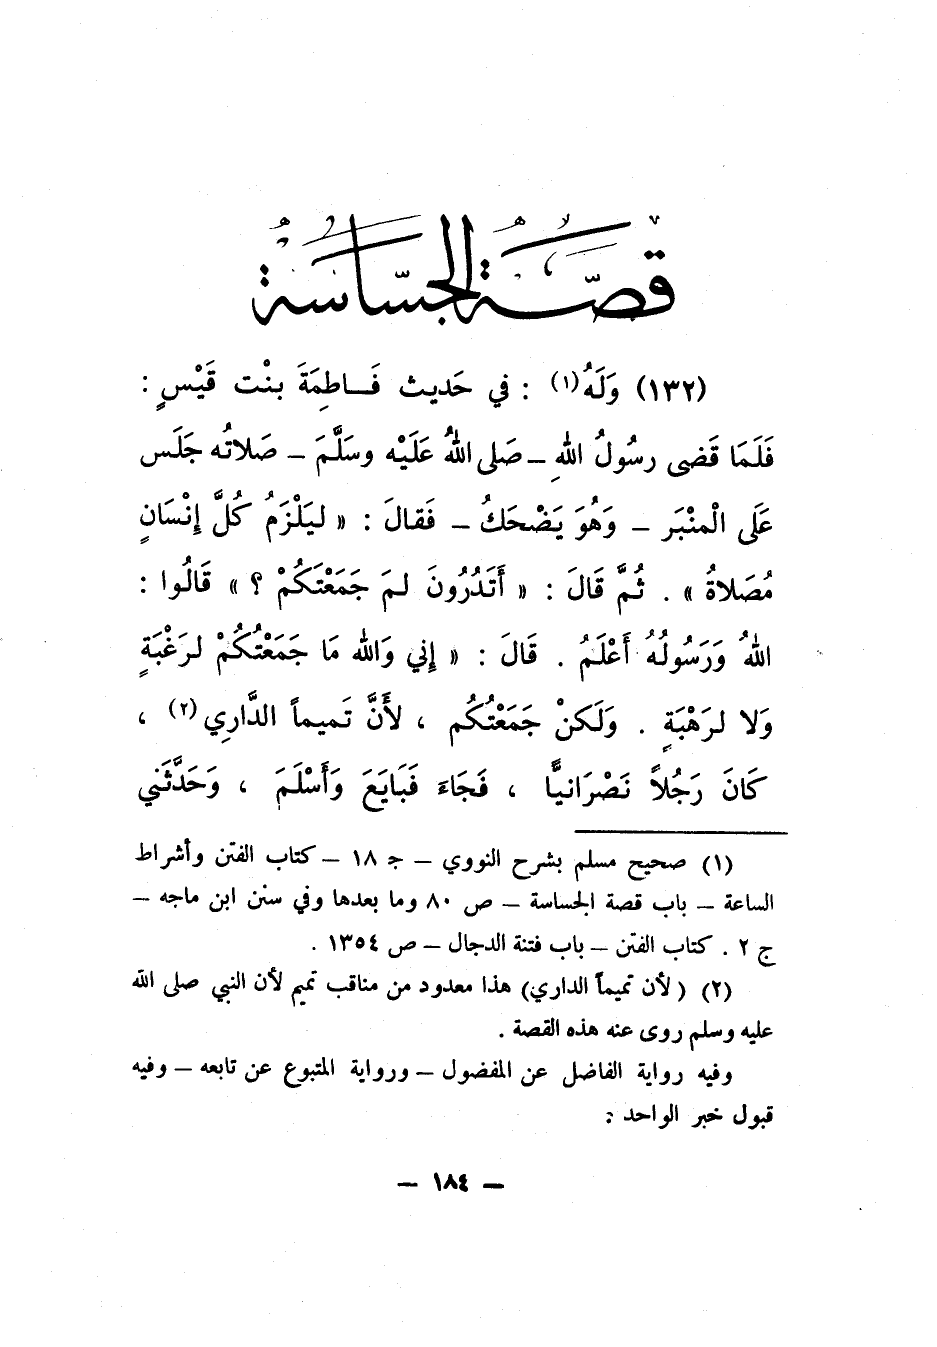 قصّة الجسّاسة
(١٣٢) وَلَهُ(١) : في حَديث فَـاطِمَةَ بنْت قَيْسٍ :
فَلَمَا قَضى رسُولُ اللهِ ـ صَلى اللهُ عَلَيْه وسَلَّمَ ـ صَلاتُه جَلَس
عَلَى الْمنْبَر ـ وَهُوَ يَضْحَكُ ـ فَقالَ : « ليَلْزَمُ كُلَّ إنْسَانٍ
مُصَلاةُ » . ثُمَّ قَالَ : « أَتَدُرُونَ لمَ جَمَعْتَكُمْ ؟ » قَالُوا :
اللهُ وَرَسُولُهُ أَعْلَمُ . قَالَ : « إني وَالله مَا جَمَعْتُكُمْ لرَغْبَةٍ
وَلا لرَهْبَةٍ . وَلَكنْ جَمَعْتُكُم ، لأَنَّ تَميماً الدَّارِي(٢) ،
كَانَ رَجُلاً نَصْرَانيًّا ، فَجَاءَ فَبَايَعَ وَأَسْلَمَ ، وَحَدَّثَني
(١) صحيح مسلم بشرح النووي ـ جـ ١٨ ـ كتاب الفتن وأشراط
الساعة ـ باب قصة الجساسة ـ ص ٨٠ وما بعدها وفي سنن ابن ماجه ـ
ج ٢ . كتاب الفتن ـ باب فتنة الدجال ـ ص ١٣٥٤ .
(٢) (لأن تميماً الداري) هذا معدود من مناقب تميم لأن النبي صلى الله
عليه وسلم روى عنه هذه القصة .
وفيه رواية الفاضل عن المفضول ـ ورواية المتبوع عن تابعه ـ وفيه
قبول خبر الواحد :
ـ ١٨٤ ـ